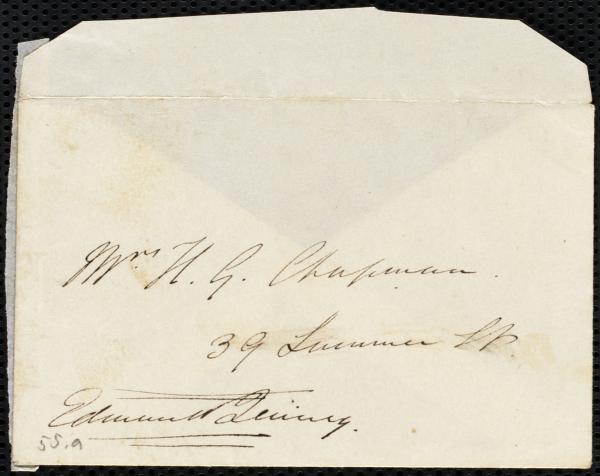 Mrs H. G. Chapman.
39 Summer St.
Edmund Quincy.
55.a